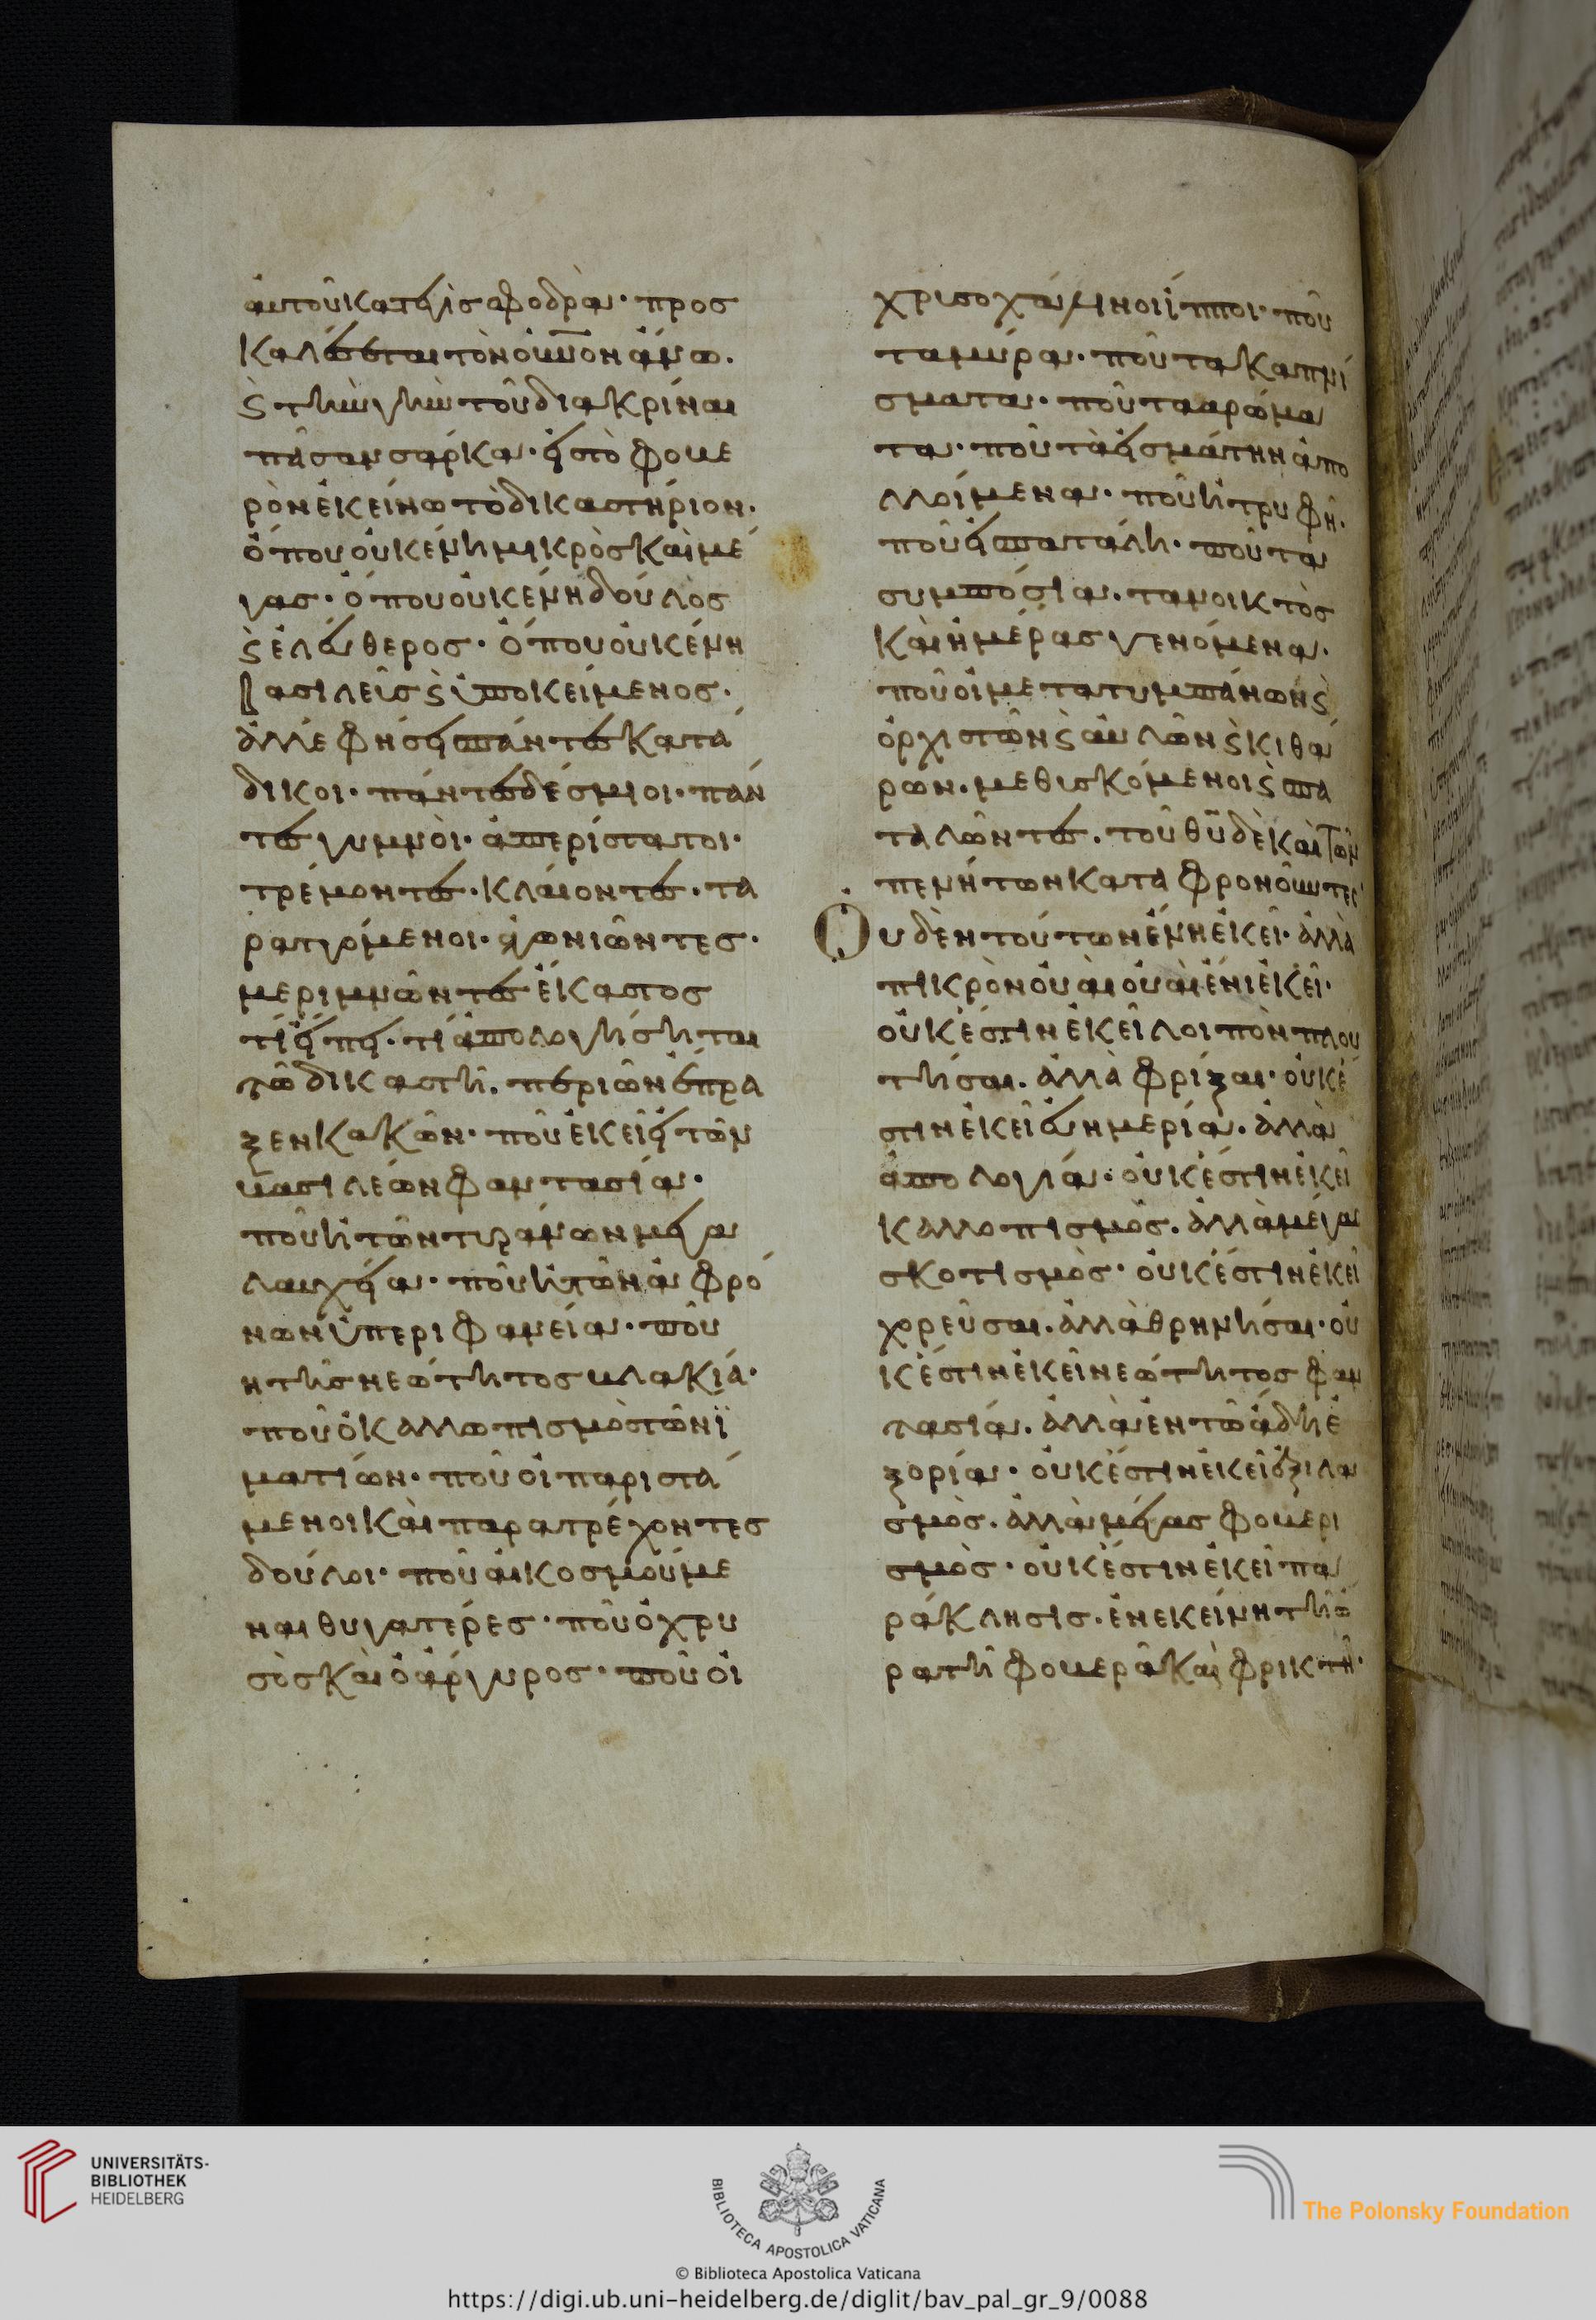 αυτοῦ καταιγὶς σφοδρὰ· προς
καλέσεται τὸν οὐνον ἄνω.
ϛ τὴν γὴν τοῦ διακρίναι
πᾶσαν σάρκα· εἰς τὸ φοβε
ρὸν ἐκείνω τὸ δικαστήριον.
ὅπου οὐκ ένη μικρὸς καὶ μέ
γας· ὅπου οὐκ ένη δούλος
ϛ ἐλεύθερος· ὅπου οὐκ ένη
βασιλεῖς ϛ ὑποκείμενος.
ἀλλ' ἐφήσει πάντες κατά
δικοι· πάντες δέσμιοι· πάν
τες γυμνοὶ· ἀπερίστατοι·
τρέμοντες· κλαίοντες· τα
ραττόμενοι· ἀγωνιῶντες·
μεριμνῶντες ἕκαστος
τί είπει· τί ἀπολογήσηται
τῶ δικαστῆ. περὶ ὧν έπρα
ξεν κακῶν· ποῦ ἐκεῖ ἡ τῶν
βασιλέων φαντασία·
ποῦ ἡ τῶν τυράνων μεγα
λαυχεία· ποῦ ἡ τῶν ἀφρό
νων ὑπεριφανεία· ποῦ
η τῆς νεώτητος βλακιά·
ποῦ ὁ καλλωπισμὸς τῶν ἱ
ματίων· ποῦ οἱ παριστά
μενοι καὶ παρατρέχοντες
δούλοι· ποῦ αἱ κοσμούμε
ναι θυγατέρες· ποῦ ὁ χρυ
σὸς καὶ ὁ άργυρος· ποῦ οἱ
χρισοχάλινοι ίπποι· ποῦ
τα μύρα· ποῦ τα καπνί
σματα· ποῦ τα αρώμα
τα· ποῦ τὰ εἰς μάτην ἀπο
λλοίμενα· ποῦ ἡ τρυφή.
ποῦ ἡ σπατάλη· ποῦ τα
συμπόσια. τα νοικτὸς
καὶ ἡμέρας γενόμενα.
ποῦ οἱ μετα τυμπάνων ϛ
ὀρχιστῶν ϛ αυλῶν ϛ κιθα
ρων. μεθισκόμενοι ϛ σπα
ταλῶντες. τοῦ θῦ δὲ καὶ τῶν
πενήτων καταφρονοῦντες·
Ουδὲν τούτων ένη ἐκεῖ· ἀλλὰ
πικρὸν οὐαὶ οὐαὶ ένι ἐκεῖ·
οὐκ έστιν ἐκεῖ λοιπὸν πλου
τῆσαι. ἀλλὰ φρίξαι· οὐκ έ
στιν ἐκεῖ εὐημερία. ἀλλὰ
ἀπολογία· οὐκ έστιν ἐκεῖ
καλλοπισμὸς. ἀλλὰ μέγα
σκοτισμὸς· οὐκ έστιν ἐκεῖ
χορεῦσαι. ἀλλὰ θρηνῆσαι· οὐ
κ έστιν ἐκεῖ νεώτητος φαν
τασία. ἀλλὰ ἐν τῶ άδη ἐ
ξορία· οὐκ έστιν ἐκεῖ ἐξιλα
σμὸς. ἀλλὰ μέγας φοβερι
σμὸς· οὐκ έστιν ἐκεῖ πα
ράκλησις. ἐν εκείνη τῆ ὥ
ρα τῆ φοβερᾶ καὶ φρικτῆ·
UNIVERSITÄTS-
BIBLIOTHEK
HEIDELBERG
BIBLIOTECA APOSTOLICA VATICANA
The Polonsky Foundation
© Biblioteca Apostolica Vaticana
https://digi.ub.uni-heidelberg.de/diglit/bav_pal_gr_9/0088